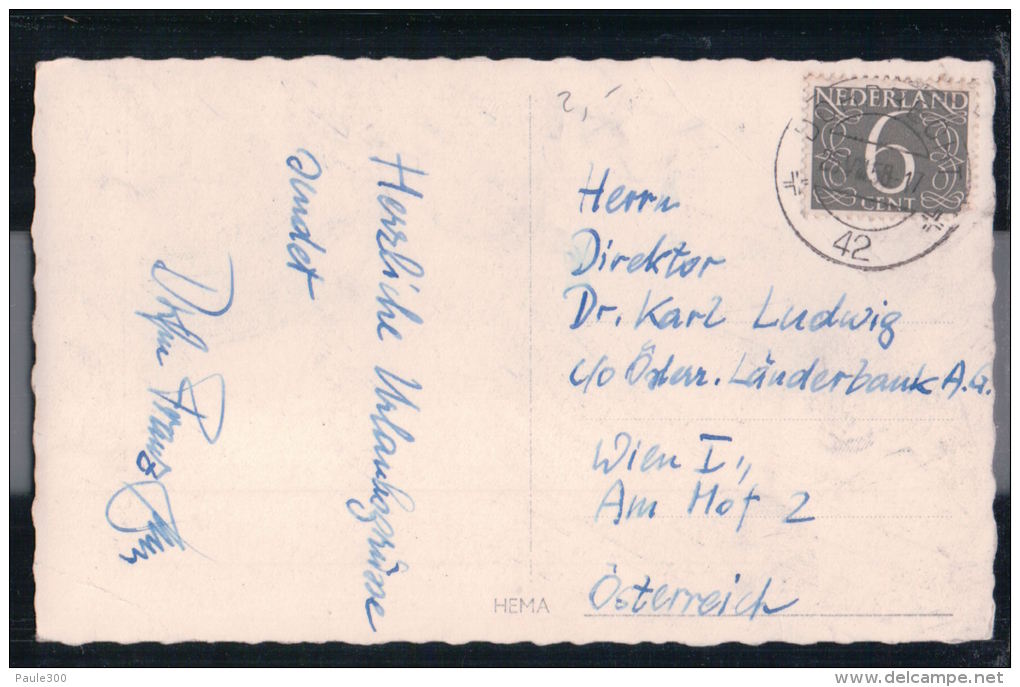 Herrliche Urlaubsgrüsse
sendet
2,-
NEDERLAND
6
CENT
58-17
42
Herrn
Direktor
Dr. Karl Ludwig
c/o Österr. Länderbank A.G.
Wien I.,
Am Hof 2
Österreich
HEMA
Paule300
delcampe.net